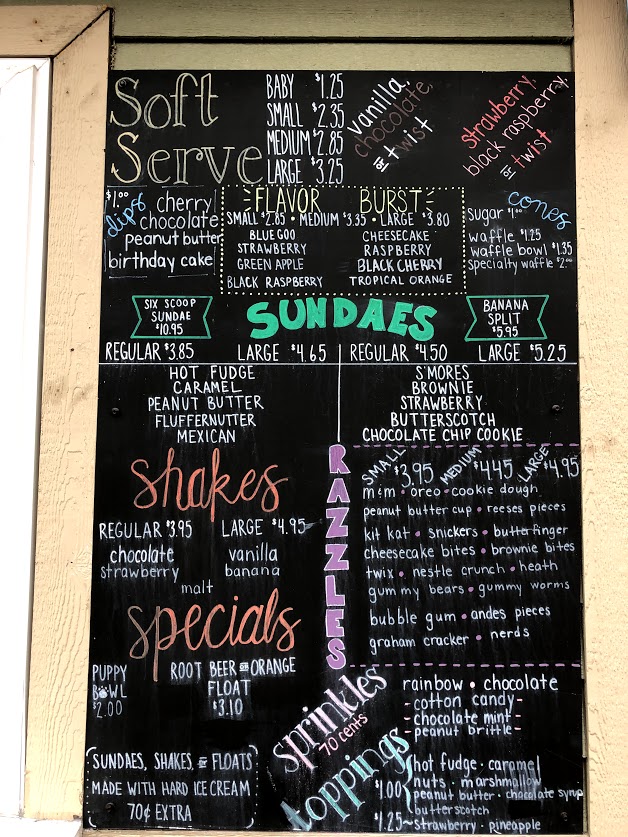 Soft Serve
BABY $1.25
SMALL $2.35
MEDIUM $2.85
LARGE $3.25
vanilla,
chocolate,
or twist
strawberry,
black raspberry,
or twist
$1.00 dips
cherry
chocolate
peanut butter
birthday cake
FLAVOR BURST
SMALL $2.85 • MEDIUM $3.35 • LARGE $3.80
BLUE GOO
STRAWBERRY
GREEN APPLE
BLACK RASPBERRY
CHEESECAKE
RASPBERRY
BLACK CHERRY
TROPICAL ORANGE
cones
sugar $1.00
waffle $1.25
waffle bowl $1.35
specialty waffle $2.00
SIX SCOOP
SUNDAE
$10.95
SUNDAES
BANANA
SPLIT
$5.95
REGULAR $3.85 LARGE $4.65
HOT FUDGE
CARAMEL
PEANUT BUTTER
FLUFFERNUTTER
MEXICAN
REGULAR $4.50 LARGE $5.25
S'MORES
BROWNIE
STRAWBERRY
BUTTERSCOTCH
CHOCOLATE CHIP COOKIE
shakes
REGULAR $3.95 LARGE $4.95
chocolate vanilla
strawberry banana
malt
RAZZLES
SMALL $3.95 MEDIUM $4.45 LARGE $4.95
m&m • oreo • cookie dough
peanut butter cup • reeses pieces
kit kat • snickers • butterfinger
cheesecake bites • brownie bites
twix • nestle crunch • heath
gummy bears • gummy worms
bubble gum • andes pieces
graham cracker • nerds
specials
PUPPY
BOWL
$2.00
ROOT BEER OR ORANGE
FLOAT
$3.10
SUNDAES, SHAKES, OR FLOATS
MADE WITH HARD ICE CREAM
70¢ EXTRA
sprinkles
70 cents
rainbow • chocolate
- cotton candy -
- chocolate mint -
- peanut brittle -
toppings
$1.00
hot fudge • caramel
nuts • marshmallow
peanut butter • chocolate syrup
butterscotch
$1.25 ~ strawberry • pineapple